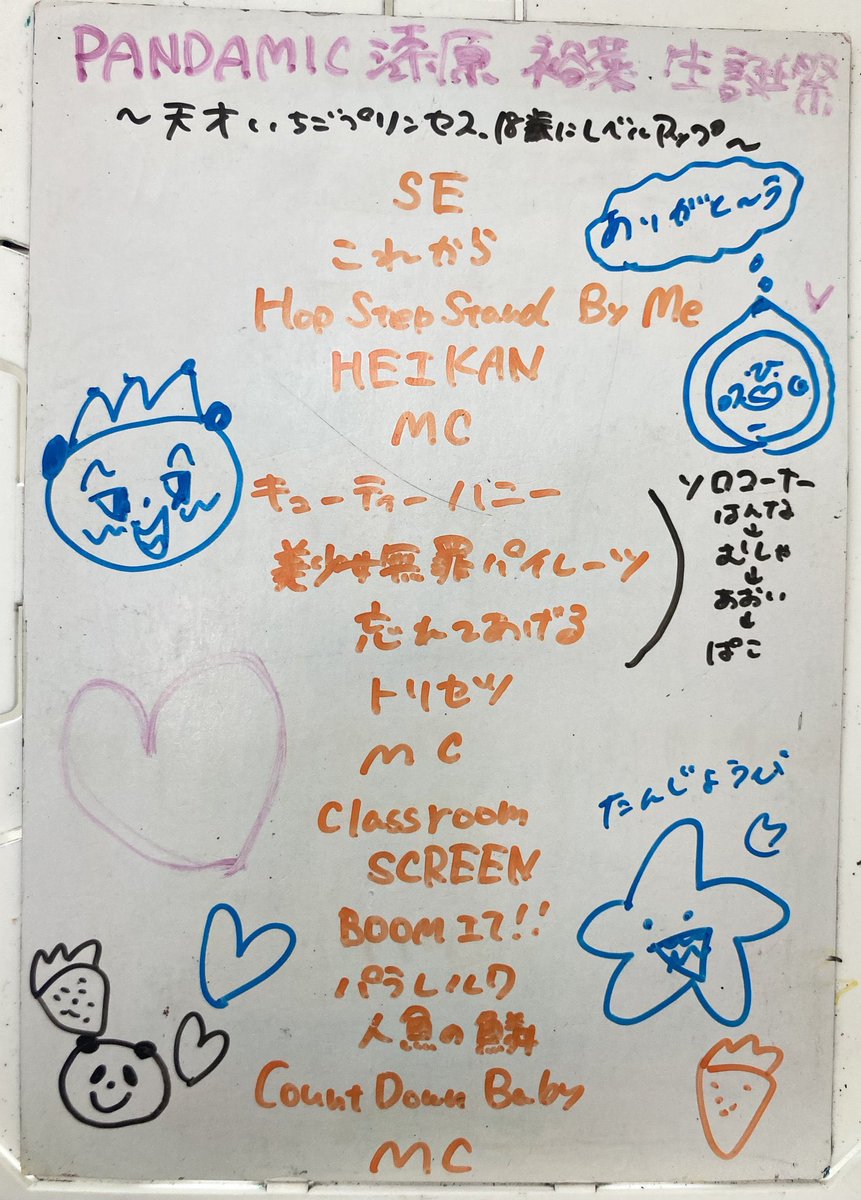 PANDAMIC 漆原 裕菜 生誕祭
〜天才いちごプリンセス、18歳にレベルアップ〜
SE
ありがと〜う
これから
Hop Step Stand By Me
HEIKAN
MC
キューティーハニー
美少女無罪パイレーツ
忘れてあげる
トリセツ
ソロコーナー
はんな
↓
むしゃ
↓
あおい
↓
ぱこ
MC
たんじょうび
Classroom
SCREEN
BOOMエて!!
パラレルワ
人魚の鱗
Count Down Baby
MC